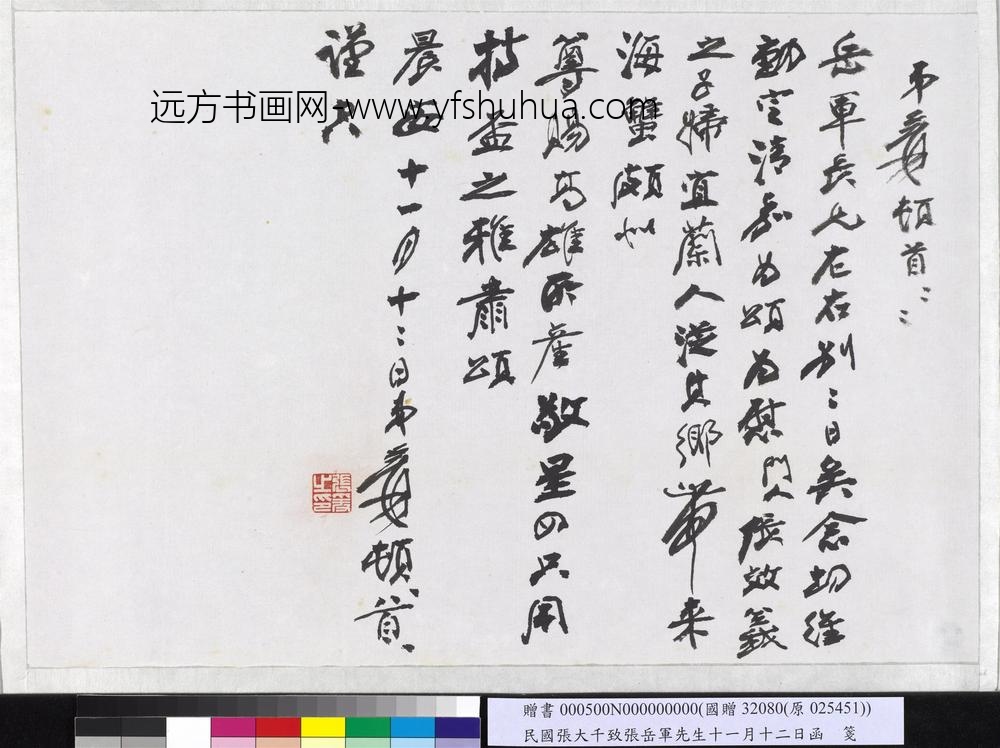 弟爰頓首::
岳軍長兄左右別三日矣念切經
動定清嘉為頌為慰門人張效義
之子婦宜蘭人從其鄉帶来
海蟹頗似
尊賜高雄所產敬呈四只用
持盃之雅肅頌
晨
十一月十二日弟爰頓首
謹
远方书画网-www.yfshuhua.com
贈書 000500N000000000(國贈 32080(原 025451))
民國張大千致張岳軍先生十一月十二日函 箋